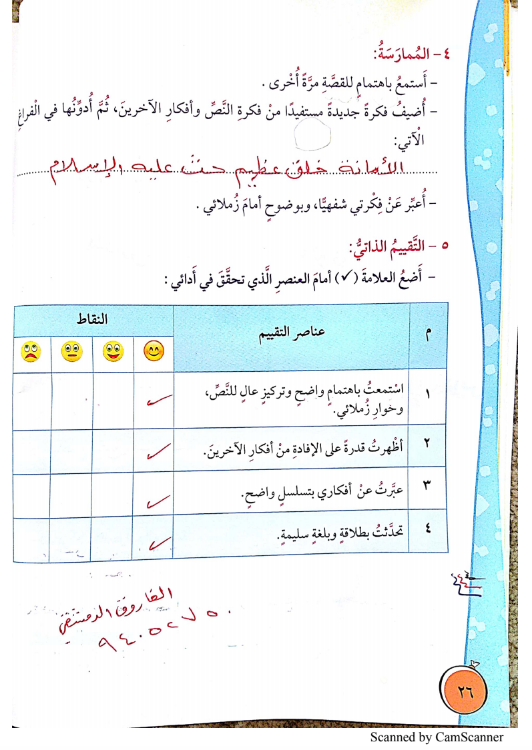 ٤ - المُمارَسَةُ:
- أَستمعُ باهتمامٍ للقصَّةِ مرَّةً أُخْرى .
- أُضيفُ فكرةً جديدةً مستفيدًا منْ فكرةِ النَّصِّ وأفكارِ الآخرينَ، ثُمَّ أُدوِّنُها في الْفراغِ
الْآتي:
الأمانة خلق عظيم حث عليه الإسلام
- أُعبِّر عَنْ فِكْرتي شفهيًّا، وبوضوحٍ أمامَ زُملائي .
٥ - التَّقييمُ الذاتيُّ:
- أضعُ العلامةَ (✓) أمامَ العنصرِ الَّذي تحقَّقَ في أَدائي :
م عناصر التقييم النقاط
١ اسْتمعتُ باهتمامٍ واضحٍ وتركيزٍ عالٍ للنَّصِّ، ✓
وحوارِ زُملائي.
٢ أظْهرتُ قدرةً على الإفادةِ منْ أفكارِ الآخرينَ. ✓
٣ عبَّرتُ عنْ أفكاري بتسلسلٍ واضحٍ. ✓
٤ تحدَّثتُ بطلاقةٍ وبلغةٍ سليمةٍ. ✓
الفاروق الدمشقي
٩٤٠٥٢٧٥٠
٢٦
Scanned by CamScanner